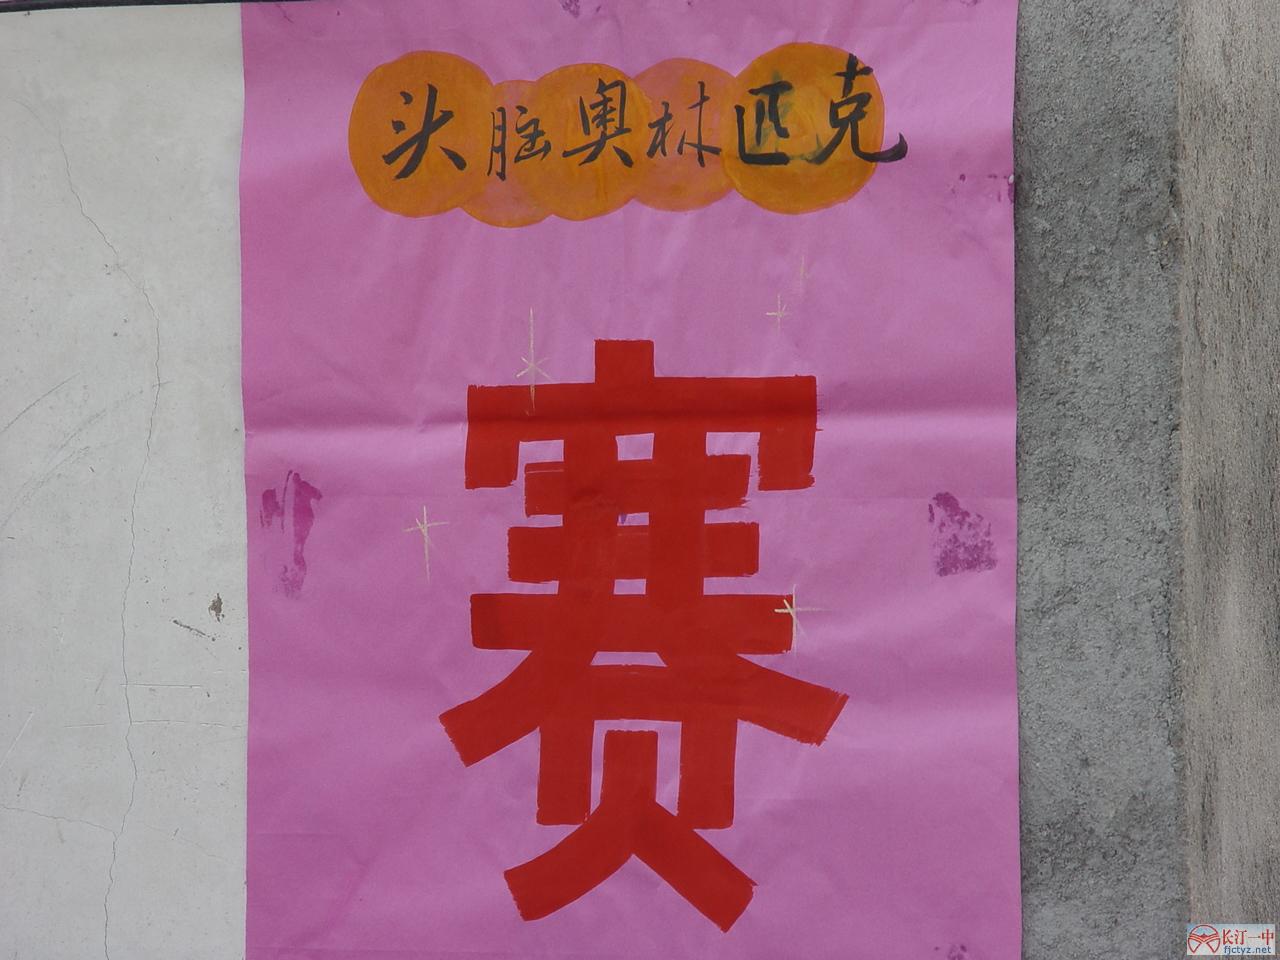 头脑奥林匹克
赛
长汀一中
fjctyz.net